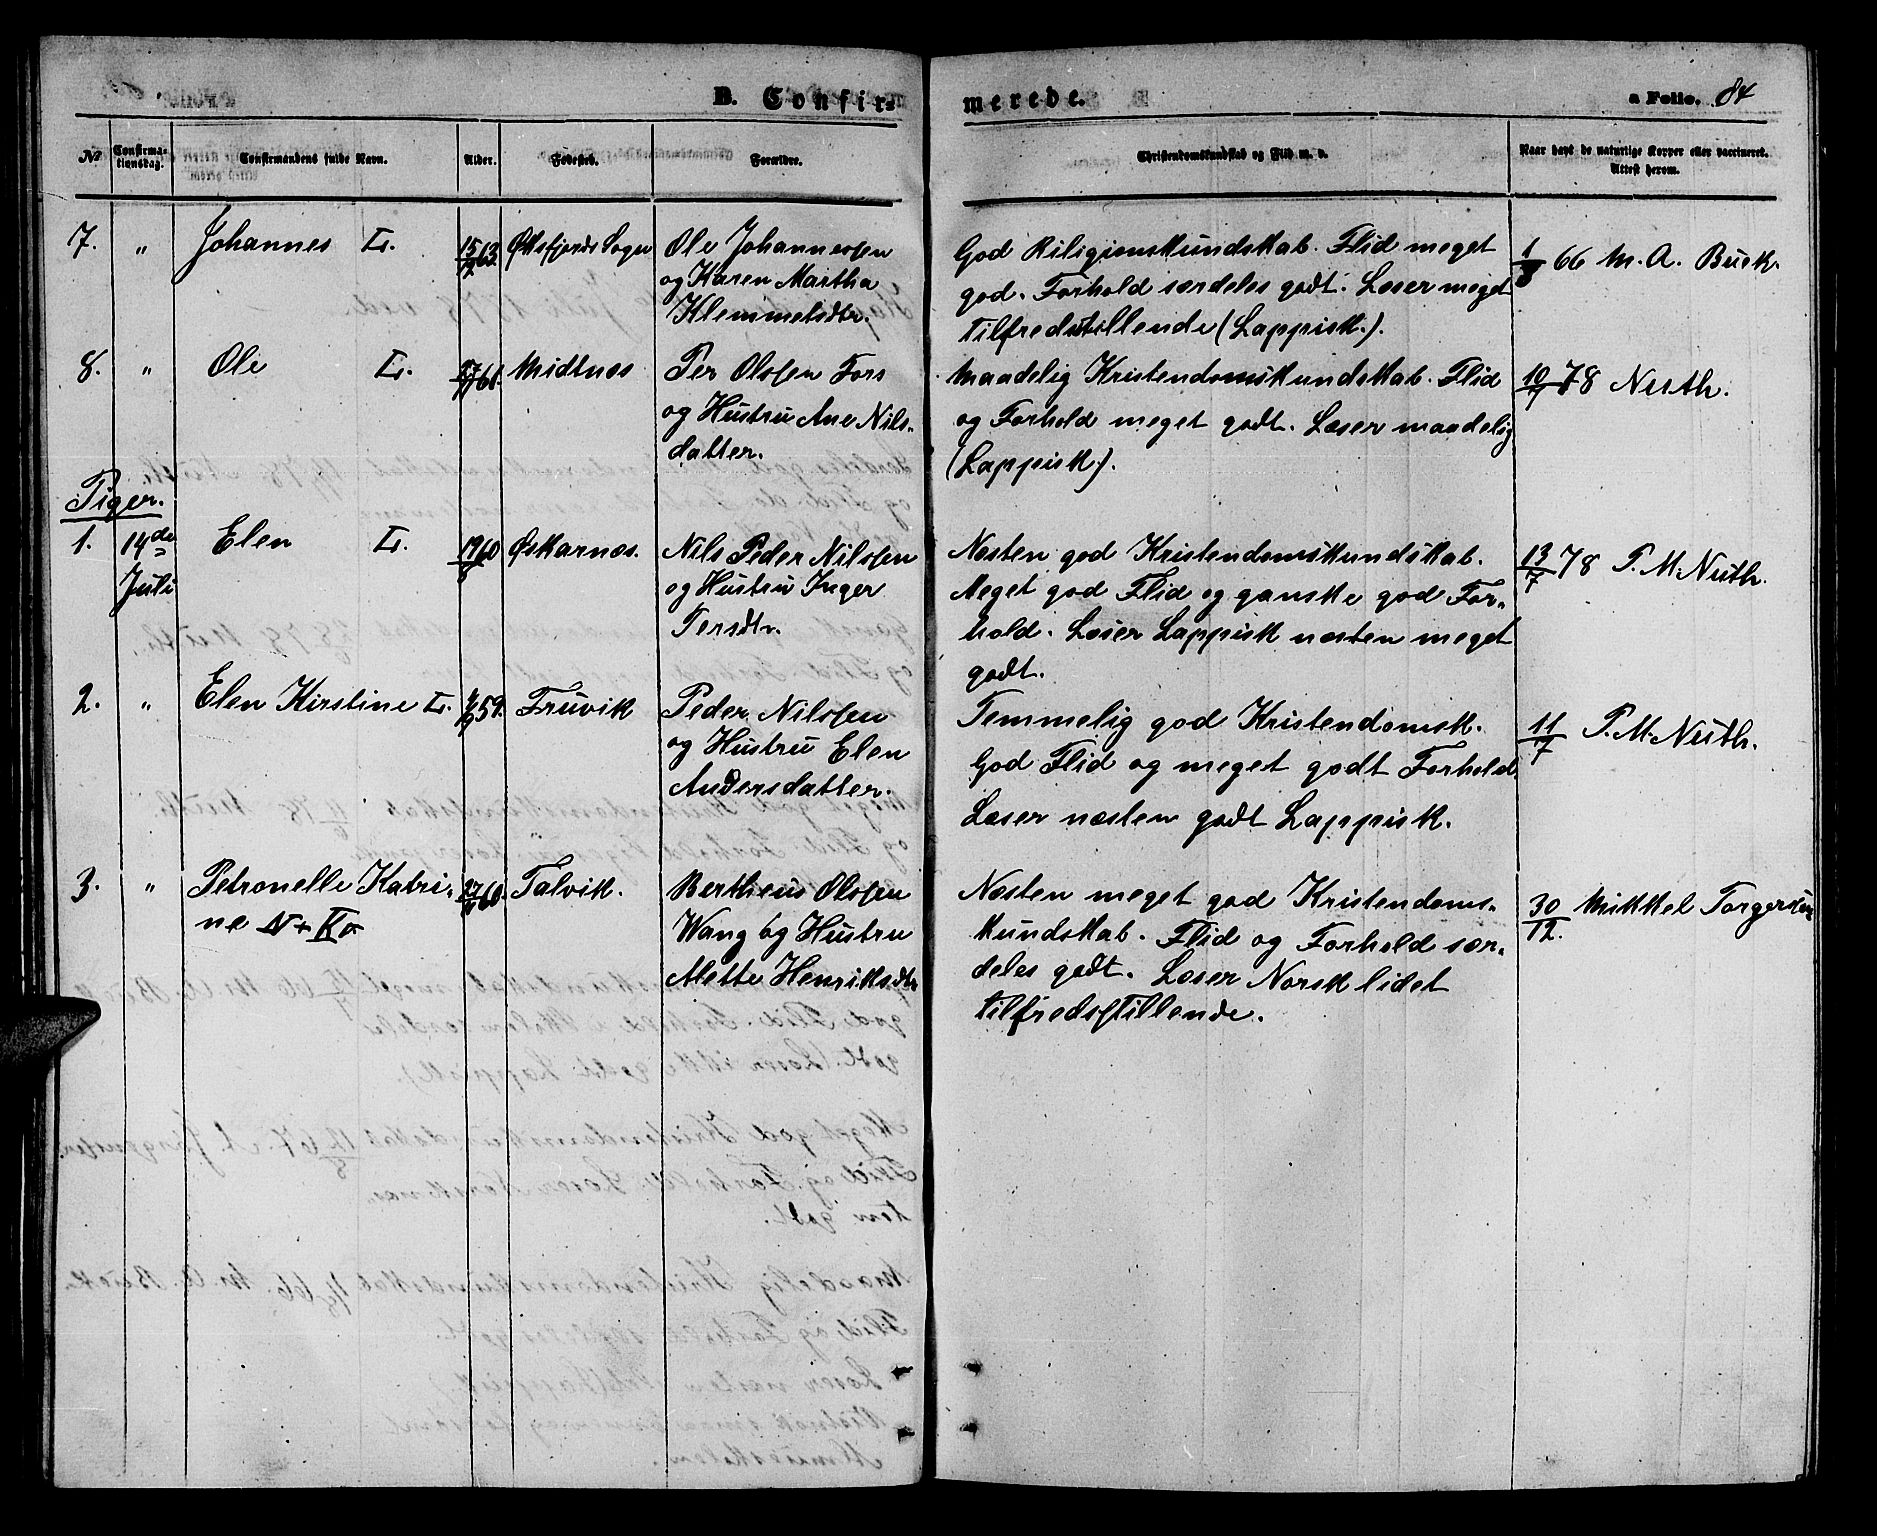 B. Confir-
merede.
a Folio. 84
No
Confirma-
tionsdag.
Confirmandens fulde Navn.
Alder.
Fødested.
Forældre.
Christendomskundskab og Flid m. v.
Naar havt de naturlige Kopper eller vaccineret.
Attest herom.
7. " Johannes L. 15/12 63. Øksfjords Sogn Ole Johannessen
og Karen Martha
Klemmetsdtr.
God Religionskundskab. Flid meget
god. Forhold særdeles godt. Læser meget
tilfredstillende (Lappisk.).
1/8 66 M. A. Buck.
8. " Ole L. 61. Midtnes Per Olssen Fors
og Hustru Ane Nils-
datter.
Maadelig Kristendomskundskab. Flid
og Forhold meget godt. Læser maadelig
(Lappisk.).
10/7 78 Nuth.
Piger.
1. 14de Juli Elen L. 19/8 60 Øskarnæs. Nils Peder Nilssen
og Hustru Inger
Persdtr.
Næsten god Kristendomskundskab.
Meget god Flid og ganske god For-
hold. Læser Lappisk næsten meget
godt.
13/7 78 P. M. Nuth.
2. " Elen Kirstine L. 59. Fruvik Peder Nilssen
og Hustru Elen
Andersdatter.
Temmelig god Kristendomsk.
God Flid og meget godt Forhold
Læser næsten godt Lappisk.
11/7 P. M. Nuth.
3. " Petronelle Katri-
ne N + Kv 60. Talvik. Bertheus Olssen
Wang og Hustru
Alette Henriksdtr
Næsten meget god Kristendoms-
kundskab. Flid og Forhold sær-
deles godt. Læser Norsk lidet
tilfredsstillende.
30/12. Mikkel Torgersen